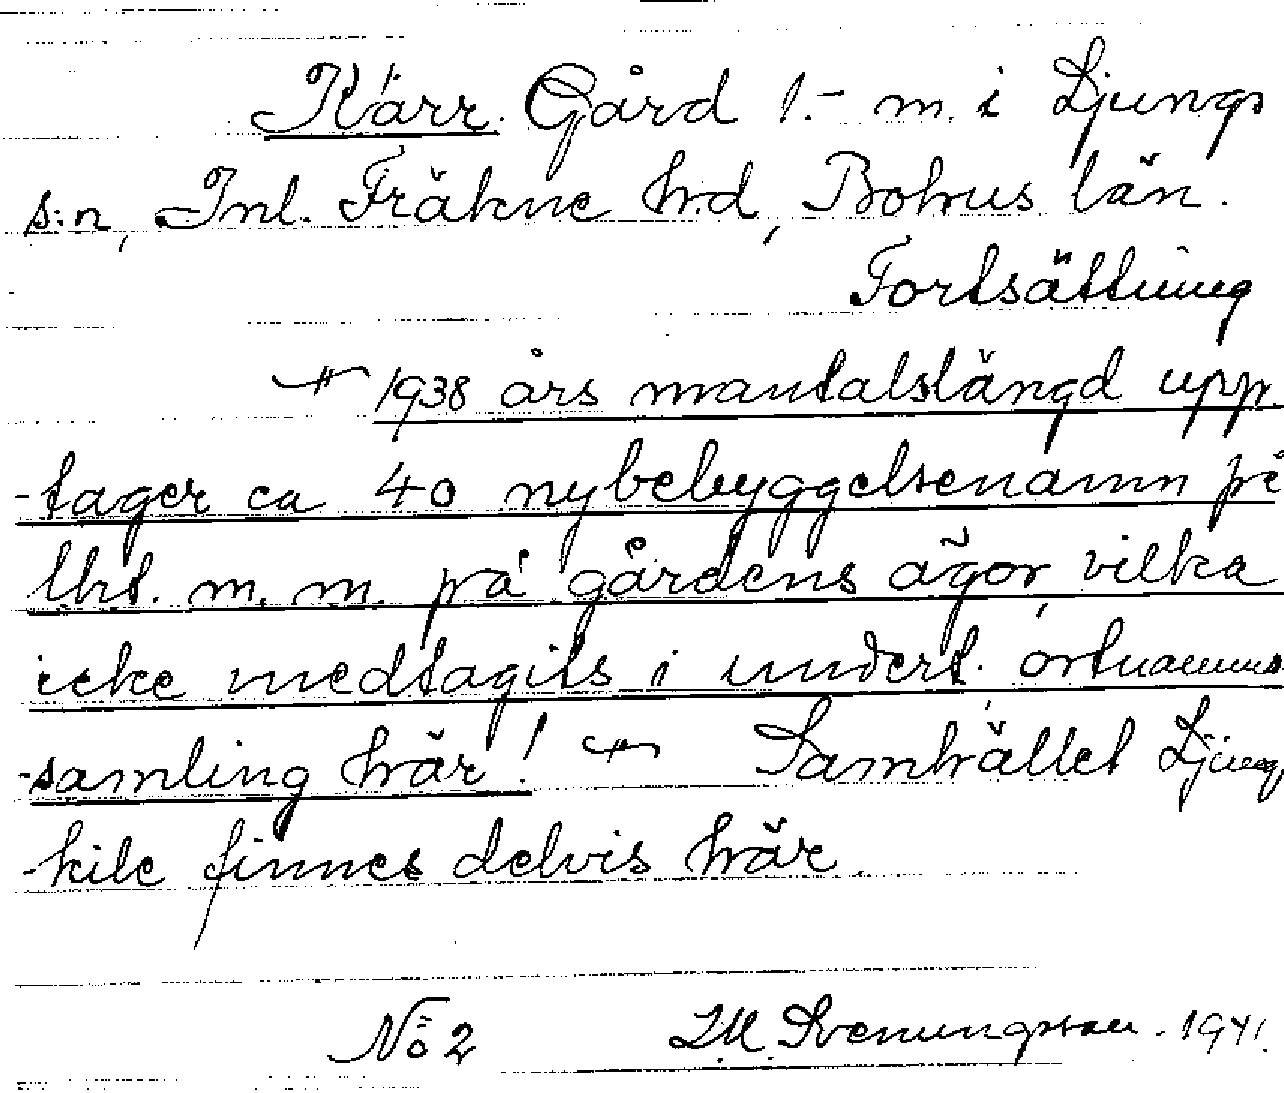 Kärr. Gård 1.- m. i Ljungs
s:n, Inl. Fräkne hrd, Bohus län.
Fortsättning
1938 års mantalslängd upp
-tager ca 40 nybebyggelsenamn på
lht. m. m. på gårdens ägor, vilka
icke medtagits i undert. ortnamns
-samling här! Samhället Ljung
-kile finnes delvis här.
No 2 Svenungsson. 1941.